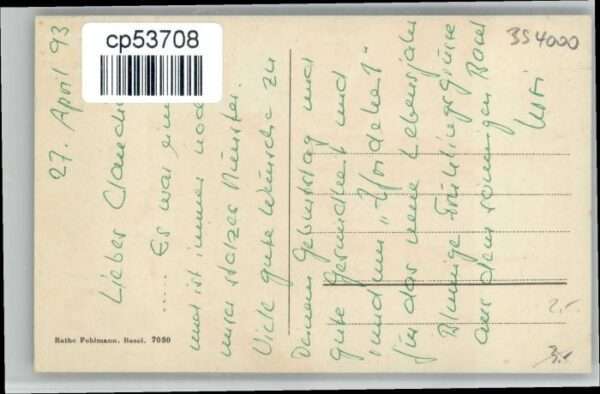 cp53708
354000
27. April 93
Lieber Claude
..... Es war ein
und ist immer noch
unser stolzes Münster.
Viele gute Wünsche zu
Deinem Geburtstag und
gute Gesundheit und
rundum „Z'frideheit"
für das neue Lebensjahr
Blumige Frühlingsgrüsse
aus dem sonnigen Basel
Rathe Fehlmann, Basel. 7050
2.-
3.-